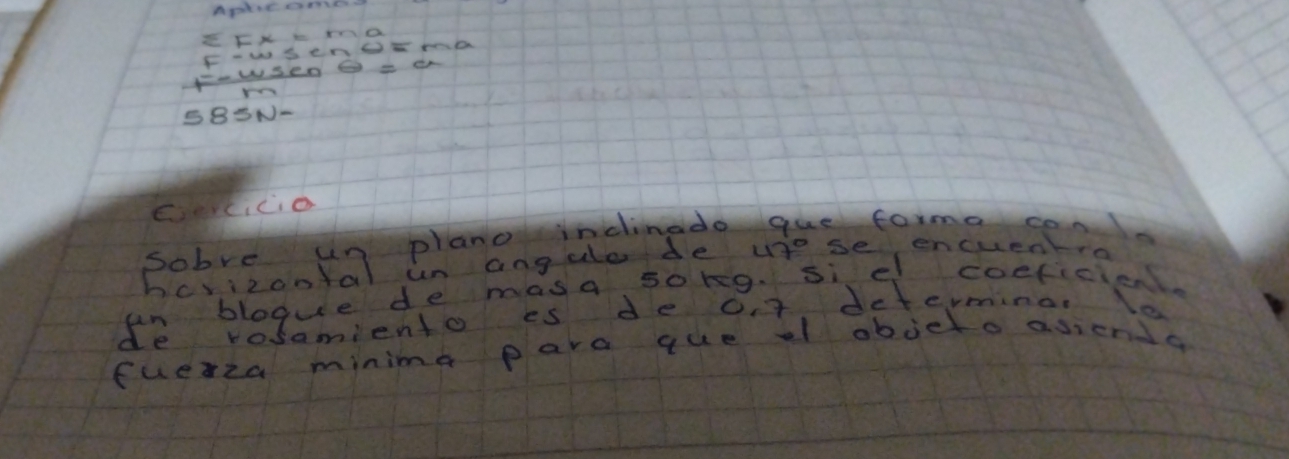 Aplicamos
Σ Fx = ma
F - wsen θ = ma
F - wsen θ = a
m
585N-
Ejercicio
Sobre un plano inclinado que forma con la
horizontal un angulo de 47° se encuentra
un bloque de masa 50 kg. Si el coeficiente
de rosamiento es de 0.7 determinar la
fuerza minima para que el objeto asienda